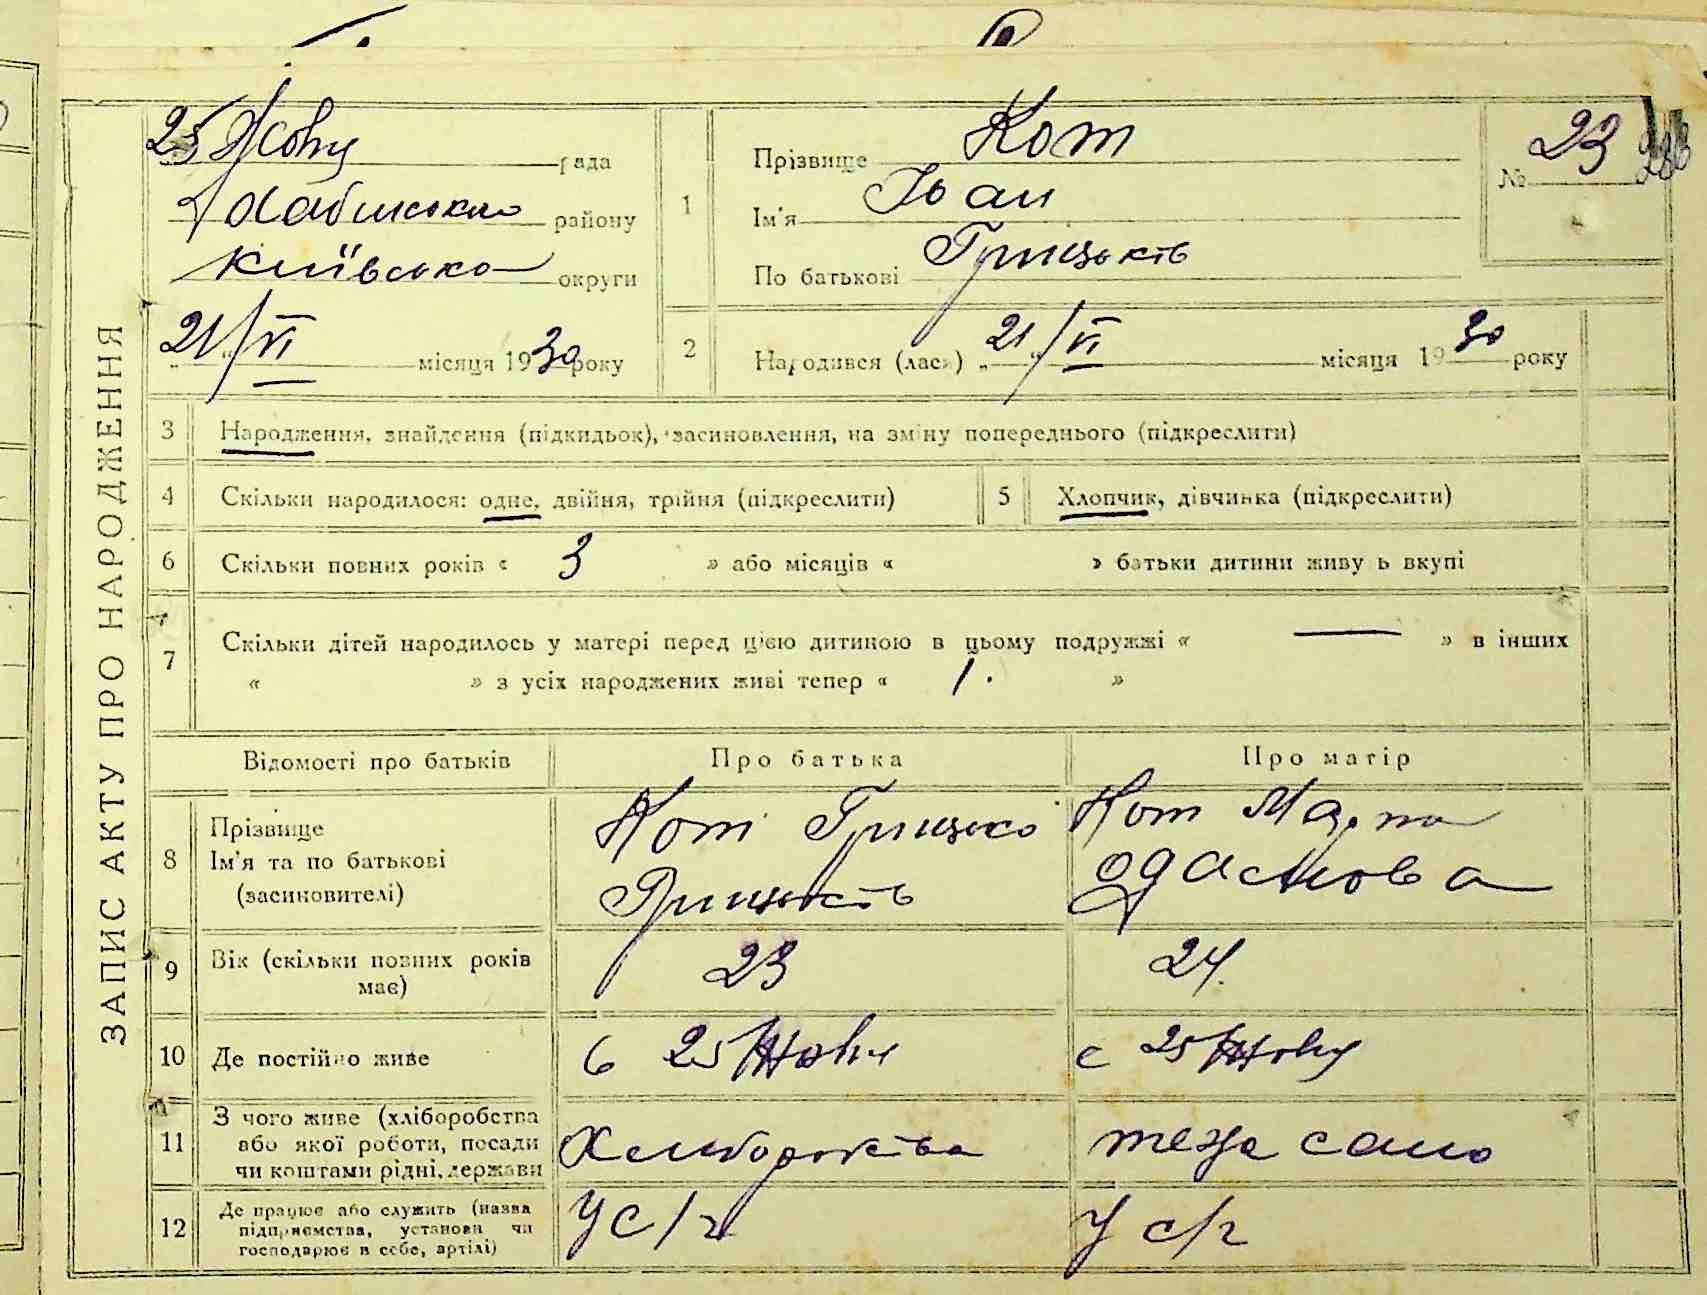 ЗАПИС АКТУ ПРО НАРОДЖЕННЯ
25 Жовт рада
Хабенського району
Київсько округи
21/VI місяця 1930 року
1
Прізвище Кот
Ім'я Іван
По батькові Грицьків
№ 23
2 Народився (лась) „ 21/VI місяця 1930 року
3 Народження, знайдення (підкидьок), засиновлення, на зміну попереднього (підкреслити)
4 Скільки народилося: одне, двійня, трійня (підкреслити)
5 Хлопчик, дівчинка (підкреслити)
6 Скільки повних років « 3 » або місяців « » батьки дитини живуть вкупі
7 Скільки дітей народилось у матері перед цією дитиною в цьому подружжі « — » в інших
« » з усіх народжених живі тепер « 1. »
Відомості про батьків
Про батька
Про матір
8 Прізвище
Ім'я та по батькові
(засиновителі)
Кот Грицько
Грицьків
Кот Марта
Адамова
9 Вік (скільки повних років
має)
23
24.
10 Де постійно живе
с 25 Жовт
с 25 Жовт
11 З чого живе (хліборобства
або якої роботи, посади
чи коштами рідні, держави
Хліборобства
теж само
12 Де працює або служить (назва
підприємства, установи чи
господарює в себе, артілі)
У с/г
У с/г